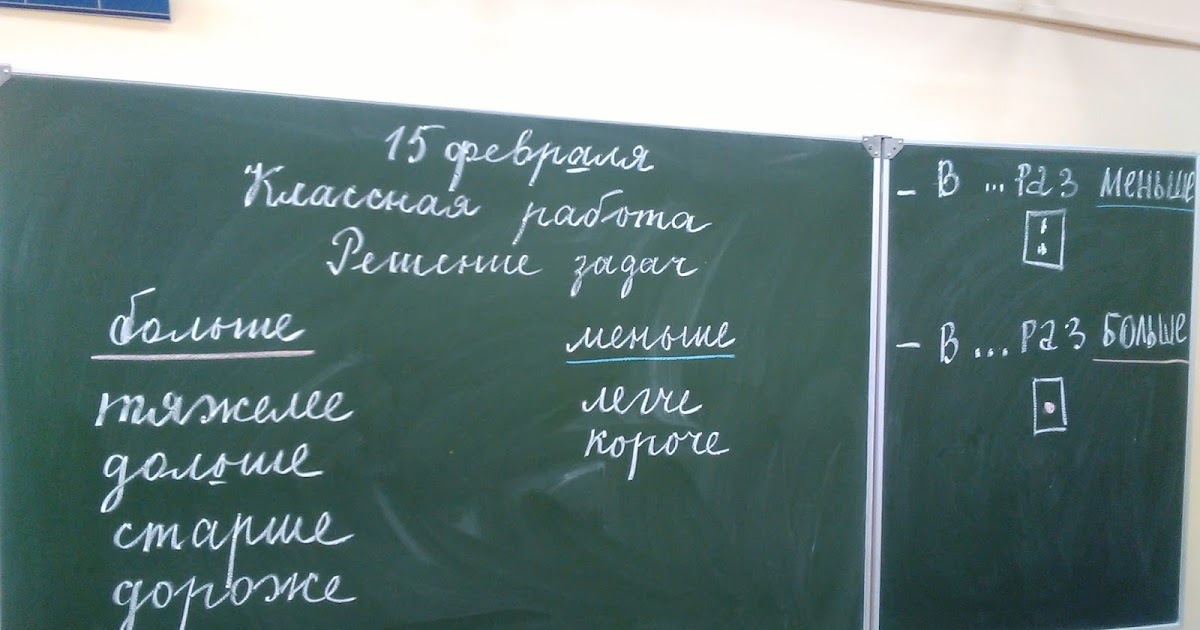 15 февраля
Классная работа
Решение задач
больше
тяжелее
дольше
старше
дороже
меньше
легче
короче
- В ... раз меньше
:
- В ... раз больше
·